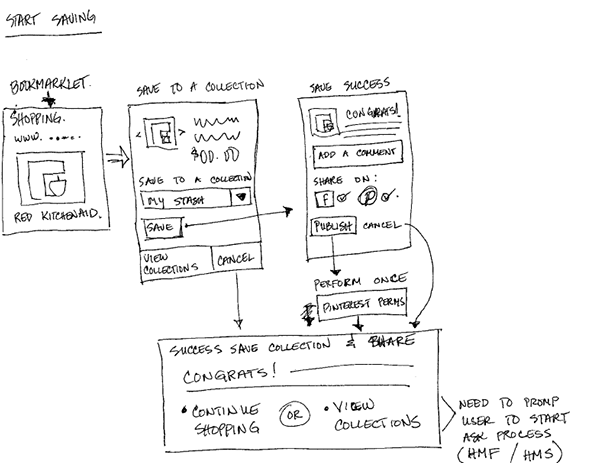 START SAVING
BOOKMARKLET.
SHOPPING.
WWW. .....
RED KITCHENAID.
SAVE TO A COLLECTION
< >
$00.00
SAVE TO A COLLECTIN
MY STASH
SAVE
VIEW
COLLECTIONS
CANCEL
SAVE SUCCESS
CONGRATS!
ADD A COMMENT
SHARE ON:
f P
PUBLISH CANCEL
PERFORM ONCE
PINTEREST PERMS
SUCCESS SAVE COLLECTION & SHARE
CONGRATS!
• CONTINUE
SHOPPING
OR
• VIEW
COLLECTIONS
NEED TO PROMP
USER TO START
ASK PROCESS
(HMF / HMS)